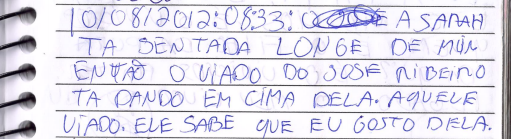 10/08/2012:08:33: E A SARAH
TA SENTADA LONGE DE MIM
ENTÃO O VIADO DO JOSE RIBEIRO
TA DANDO EM CIMA DELA. AQUELE
VIADO. ELE SABE QUE EU GOSTO DELA.